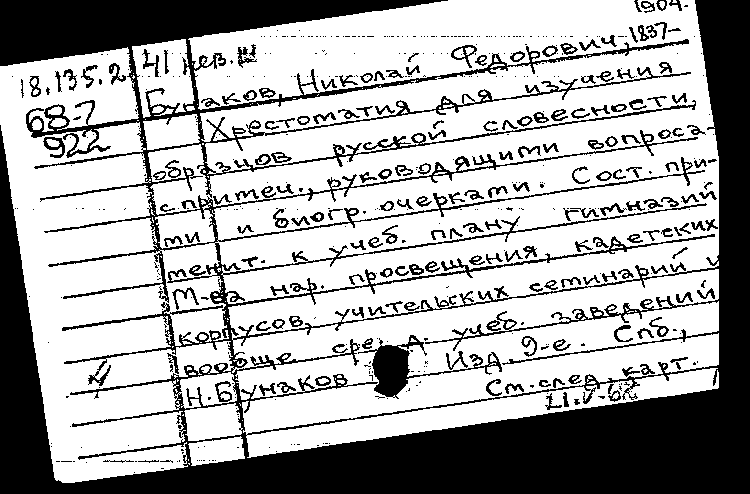 1904.
18.135.2 41 нев.
Бунаков, Николай Федорович, 1837–
68-7
922
Хрестоматия для изучения
образцов русской словесности,
с примеч., руководящими вопроса-
ми и биогр. очерками. Сост. при-
менит. к учеб. плану гимназий
М-ва нар. просвещения, кадетских
корпусов, учительских семинарий и
вообще сред. учеб. заведений
Н. Бунаков Изд. 9-е. Спб.,
См. след. карт.